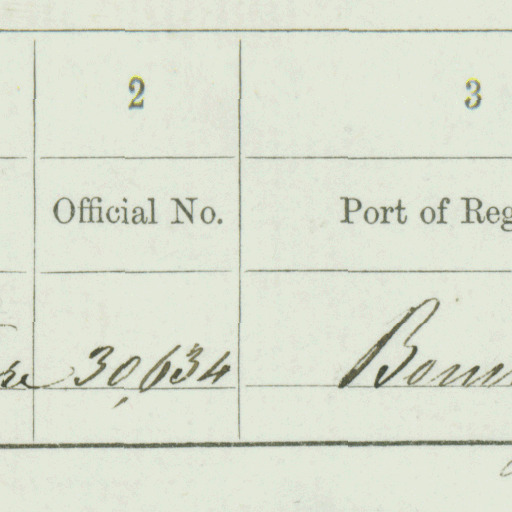 2 3
Official No. Port of Reg
30,634